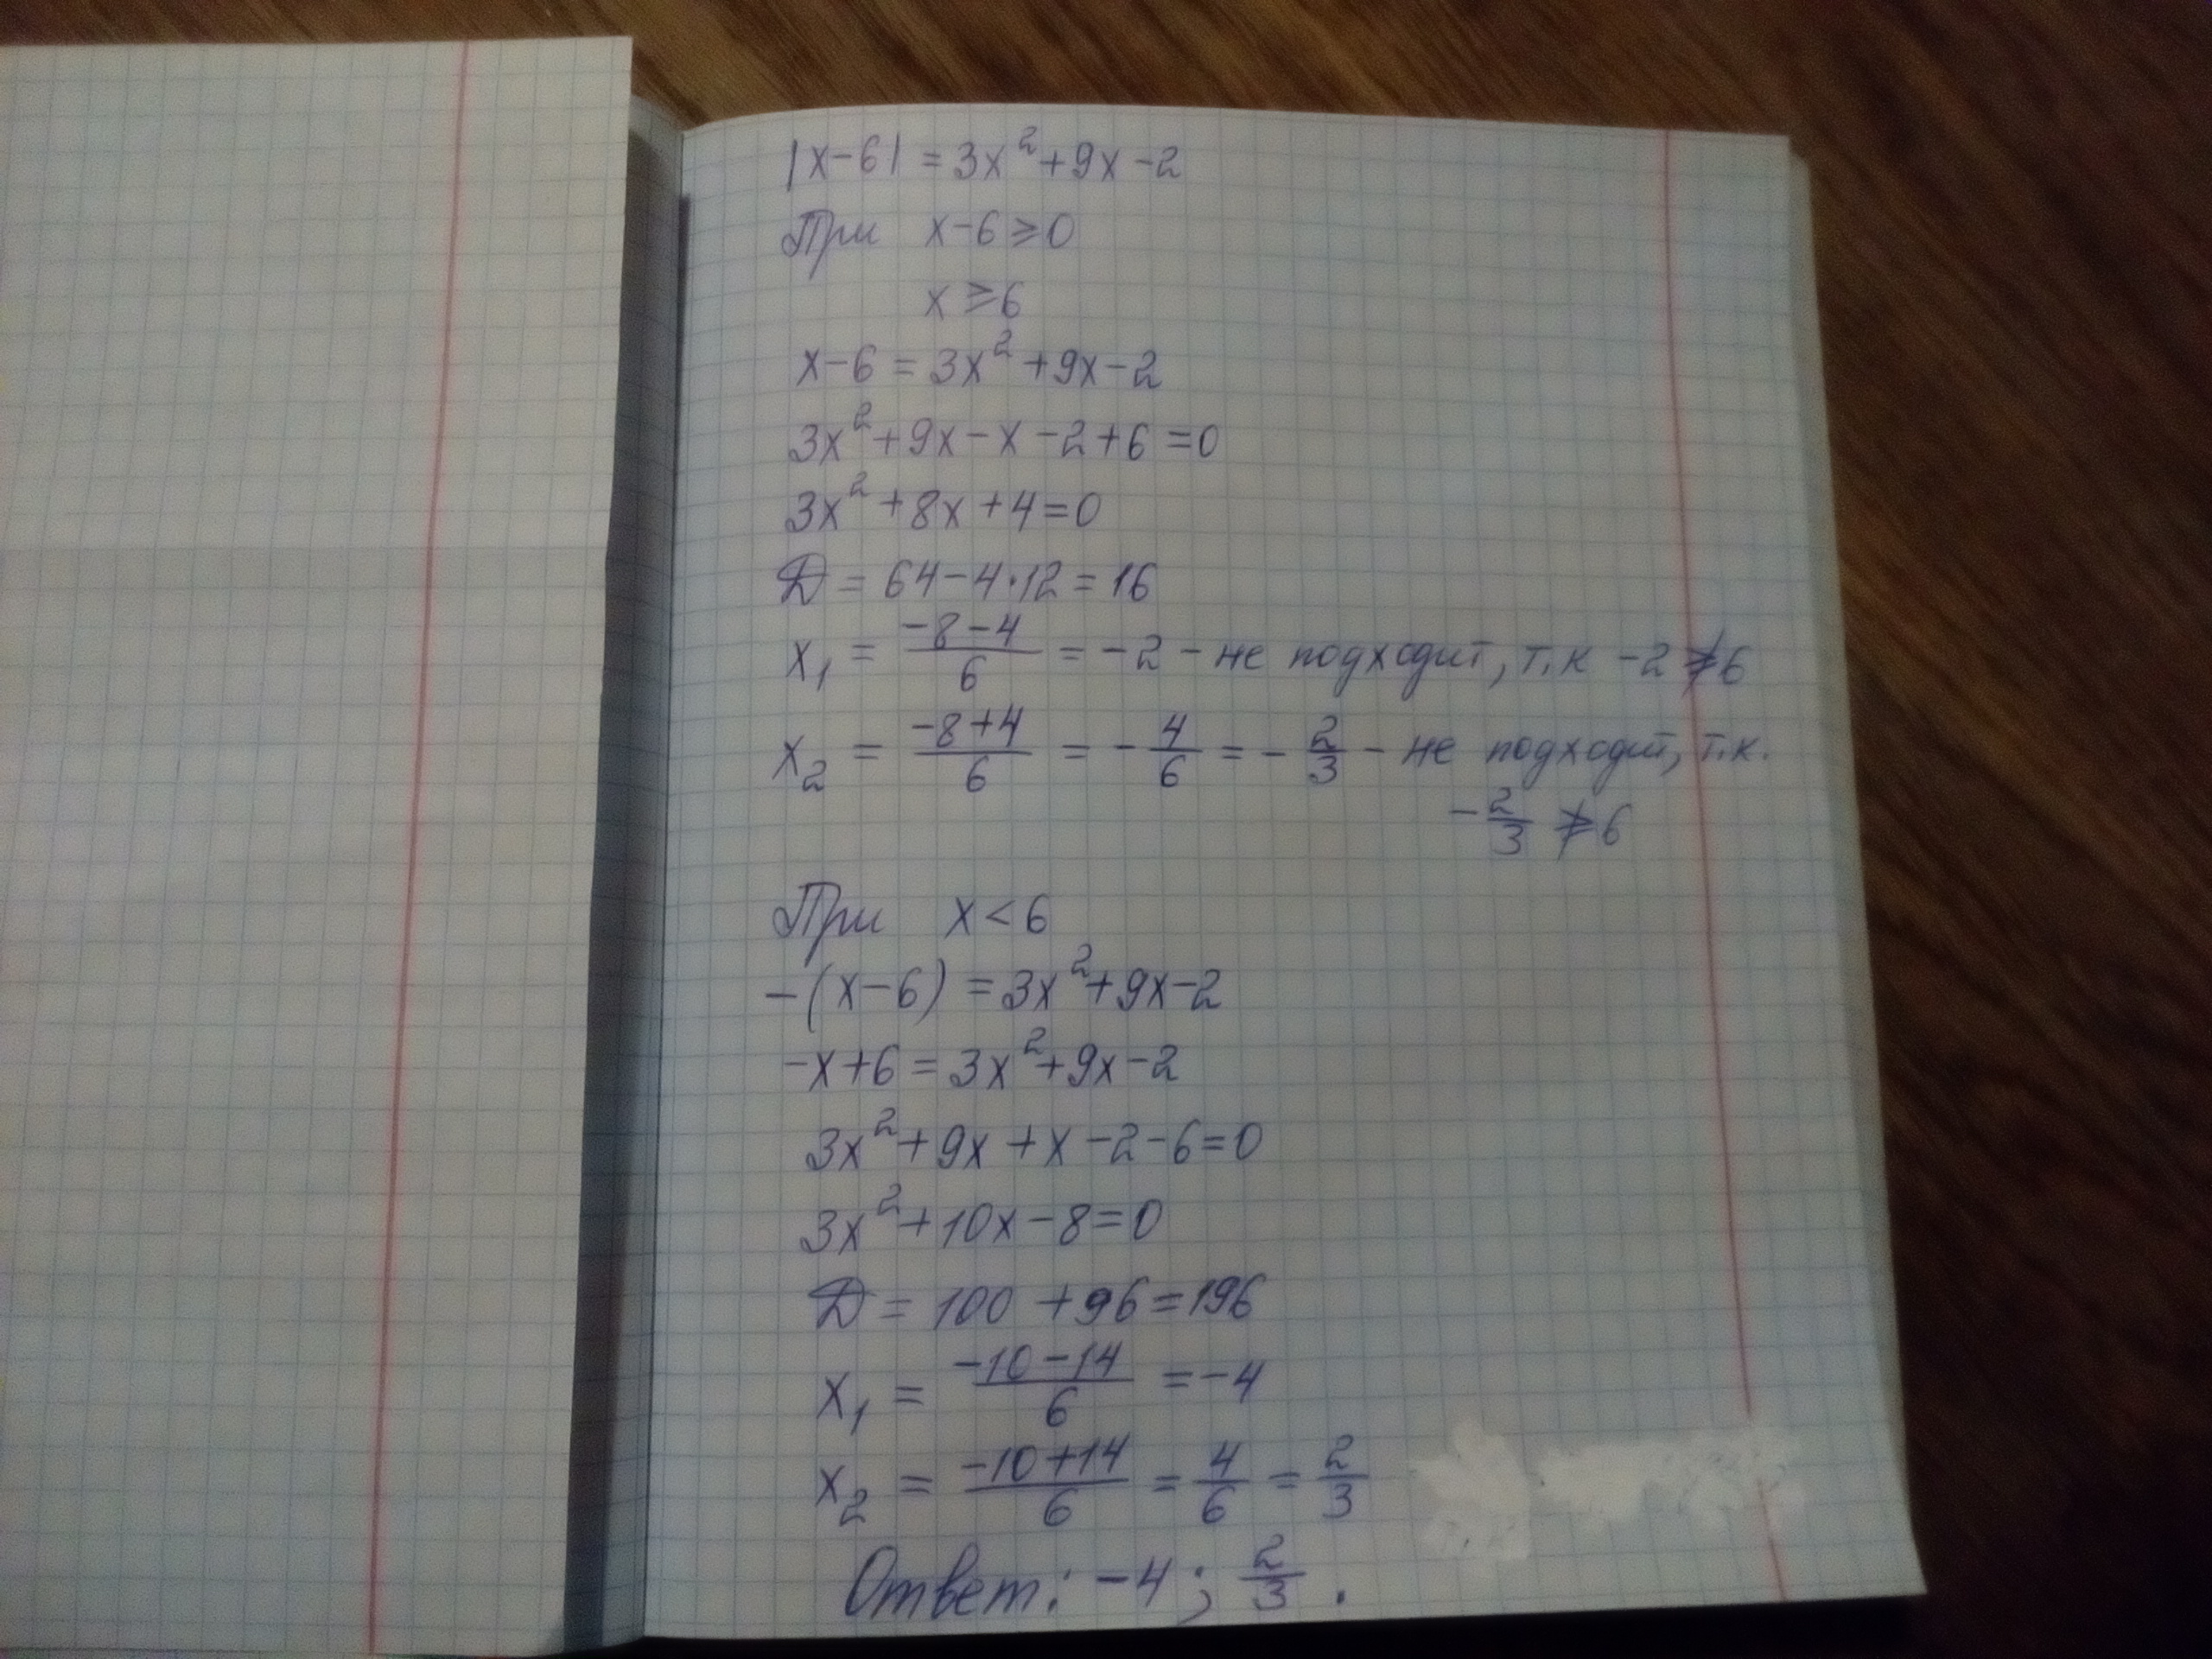 |x-6| = 3x²+9x-2
При x-6⩾0
x⩾6
x-6=3x²+9x-2
3x²+9x-x-2+6=0
3x²+8x+4=0
D = 64-4·12=16
x₁ = (-8-4)/6 = -2 - не подходит, т.к -2 ⩾̸ 6
x₂ = (-8+4)/6 = -4/6 = -2/3 - не подходит, т.к.
-2/3 ⩾̸ 6
При x<6
-(x-6)=3x²+9x-2
-x+6=3x²+9x-2
3x²+9x+x-2-6=0
3x²+10x-8=0
D = 100+96=196
x₁ = (-10-14)/6 = -4
x₂ = (-10+14)/6 = 4/6 = 2/3
Ответ: -4; 2/3.